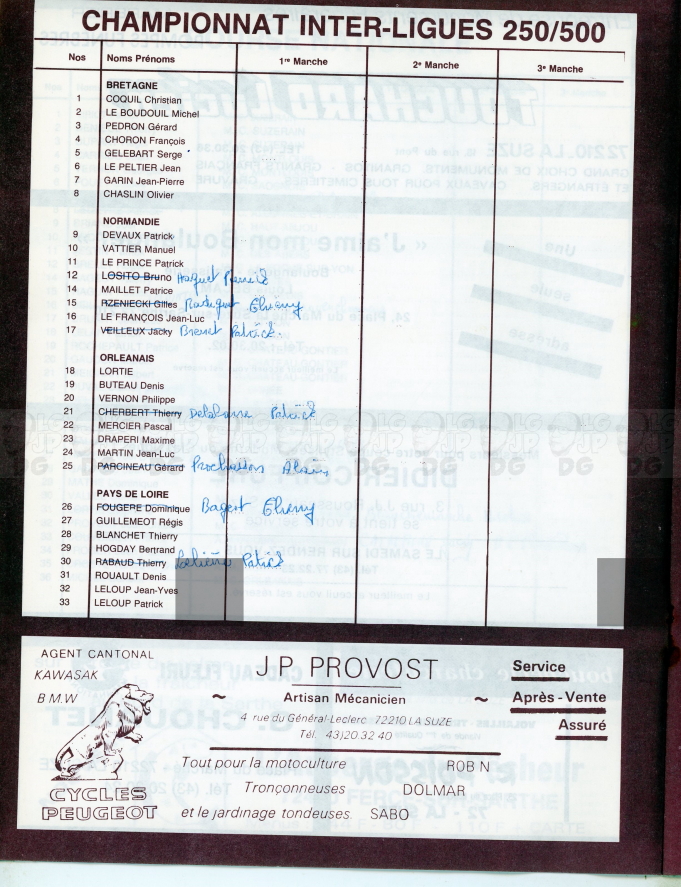 CHAMPIONNAT INTER-LIGUES 250/500
Nos Noms Prénoms 1re Manche 2e Manche 3e Manche
BRETAGNE
1 COQUIL Christian
2 LE BOUDOUIL Michel
3 PEDRON Gérard
4 CHORON François
5 GELEBART Serge
6 LE PELTIER Jean
7 GARIN Jean-Pierre
8 CHASLIN Olivier
NORMANDIE
9 DEVAUX Patrick
10 VATTIER Manuel
11 LE PRINCE Patrick
12 LOSITO Bruno
14 MAILLET Patrice
15 RZENIECKI Gilles Radiguet Thierry
16 LE FRANÇOIS Jean-Luc
17 VEILLEUX Jacky Brenet Patrick
ORLEANAIS
18 LORTIE
19 BUTEAU Denis
20 VERNON Philippe
21 CHERBERT Thierry Patrick
22 MERCIER Pascal
23 DRAPERI Maxime
24 MARTIN Jean-Luc
25 PARCINEAU Gérard Alain
PAYS DE LOIRE
26 FOUGERE Dominique Bagert Thierry
27 GUILLEMEOT Régis
28 BLANCHET Thierry
29 HOGDAY Bertrand
30 RABAUD Thierry Patrick
31 ROUAULT Denis
32 LELOUP Jean-Yves
33 LELOUP Patrick
JLG JP DG
AGENT CANTONAL
KAWASAK
B M.W
J.P. PROVOST
Artisan Mécanicien
4 rue du Général-Leclerc 72210 LA SUZE
Tél. 43)20.32 40
Service
Après-Vente
Assuré
Tout pour la motoculture ROB N
Tronçonneuses DOLMAR
et le jardinage tondeuses. SABO
CYCLES
PEUGEOT